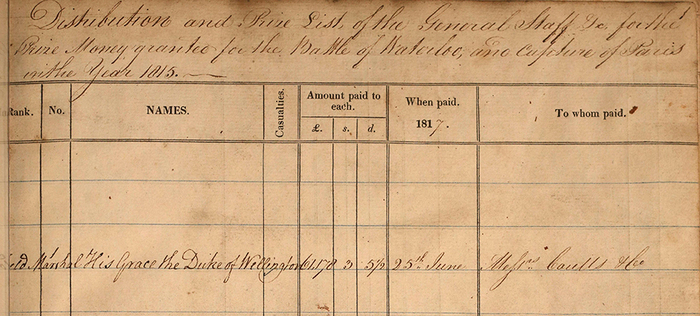 Distribution and Prize List, of the General Staff &c, for the
Prize Money granted for the Battle of Waterloo, and Capture of Paris
in the Year 1815.
Rank. No. NAMES. Casualties. Amount paid to each. £. s. d. When paid. 1817. To whom paid.
eld Marshal His Grace the Duke of Wellington 61,178 3 5½ 25th June Messrs Coutts & Co